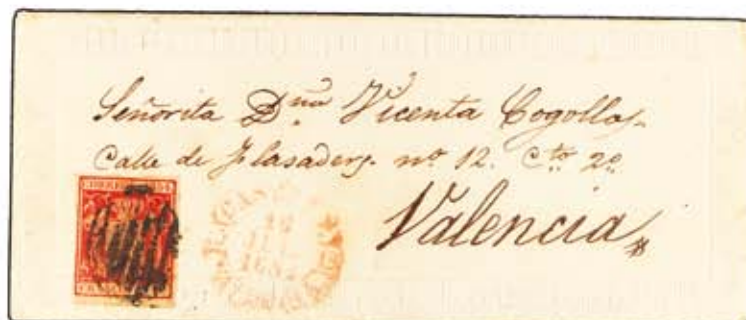 Señorita Dña Vicenta Cogollos.
Calle de Flasaders. nº 12. Cto 2º
Valencia